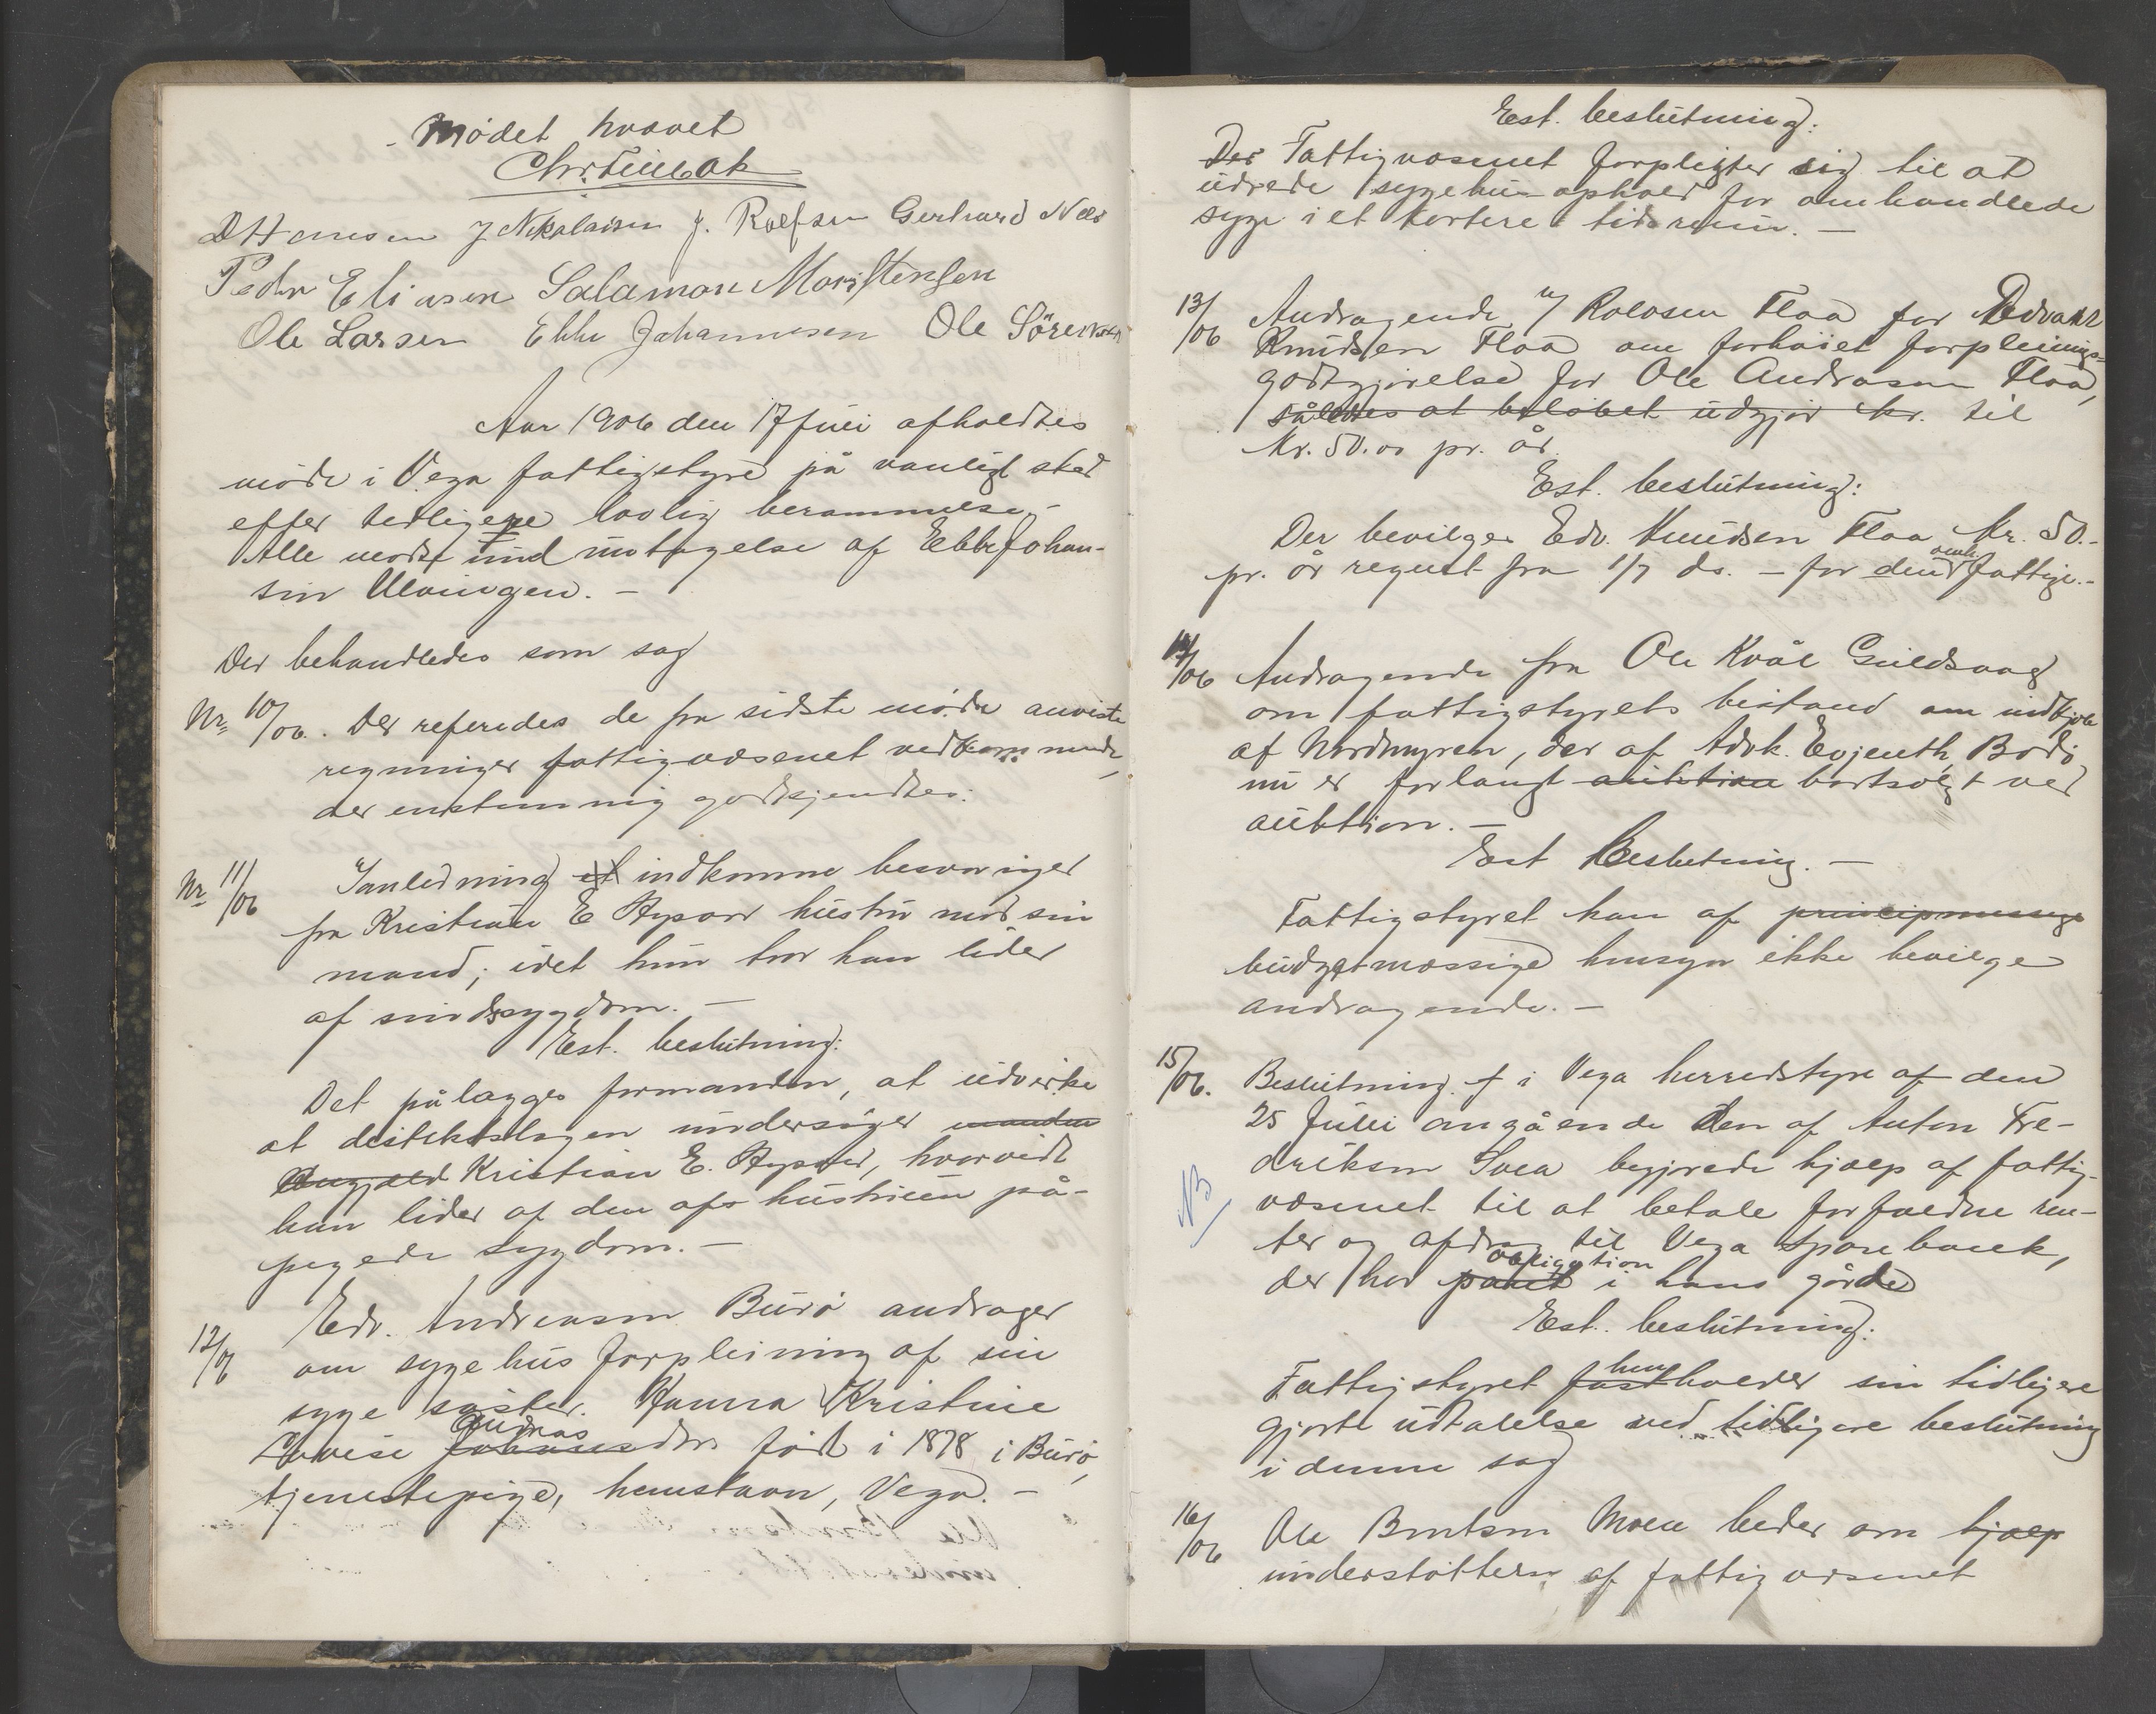 Mødet hævet
D Hansen J Nikolaisen J. Rolfsen Gerhard Nils
Peder Eliasen Salamon Mortensen
Ole Larsen Ebbe Johannesen Ole Sörensen
Aar 1906 den 17 juli afholdtes
møde i Vega fattigstyre på vanligt sted
efter tidligere lovlig berammelse. -
Alle mødte med undtagelse af Ebbe Johan-
sen Ulvingen. -
Der behandledes som sag
Nr. 10/06. Der referedes de fra sidste møde anviste
regninger fattigvæsenet vedkommende,
der enstemmig godkjendtes.
Nr. 11/06 I anledning af indkomne besværinger
fra Kristian E hustru mod sin
mand; idet hun tror han lider
af sindssygdom. -
Est. beslutning:
Det pålægges formanden, at udvirke
at distriktslægen undersøger manden
Kristian E. hvorvidt
han lider af den af hustruen på-
pegede sygdom. -
12/06 Edv. Andreasen Burø andrager
om sygehus forpleining af sin
syge søster. Hanna Kristine
Lovise Johansdtr Andreas født i 1878 i Burø,
tjenestepige, hemstavn, Vega. -
Est. beslutning:
Der Fattigvæsenet forpligter sig til at
udrede sygehusophold for omhandlede
syge i et kortere tidsrum. -
13/06 Andragende Rolosen Floa for Edvard
Knudsen Floa om forhøiet forpleinings-
godtgjørelse for Ole Andreasen Floa,
således at beløbet udgjør kr. til
Kr. 50.00 pr. år.
Est. beslutning:
Der bevilges Edv. Knudsen Floa Kr. 50.-
pr. år regnet fra 1/7 ds. - for den omh. fattige. -
14/06 Andragende fra Ole Kvål Guldsvag
om fattigstyrets bistand om indkjøb
af Nordmyren, der af Advk. Evjenth, Bodø
nu er forlangt auktion bortsolgt ved
auktion. -
Est Beslutning. -
Fattigstyret kan af principmæssige
budgetmæssige hensyn ikke bevilge
andragende. -
15/06. Beslutning f i Vega herredstyre af den
25 Juli angående den af Anton Fre-
driksen Svea begjærede hjælp af fattig-
væsenet til at betale forfaldne ren-
ter og afdrag til Vega Sparebank,
der har pant obligation i hans gårde
NB
Est. beslutning:
Fattigstyret fast henholder sin tidligere
gjorte udtalelse ved tidligere beslutning
i denne sag
16/06 Ole Berntsen Moen beder om hjælp
understøttelse af fattigvæsenet